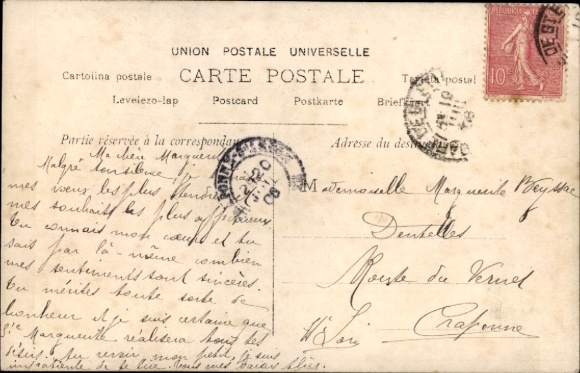 UNION POSTALE UNIVERSELLE
CARTE POSTALE
Cartolina postale
Levelezo-lap Postcard Postkarte
Partie réservée à la correspondance
Adresse du
10c
Ma chère Marguerite
Malgré ton silence je
mes vœux les plus tendres
mes souhaits les plus affectueux
Tu connais mon cœur et tu
sais par là-même combien
mes sentiments sont sincères.
Tu mérites toute sorte de
bonheur et je suis certaine que
Ste Marguerite réalisera tous tes
désirs. Au revoir, mon petit, je suis
impatiente de te lire.
Mademoiselle Marguerite
Dentelles
Route du Vernet
Craponne
Hte Loire